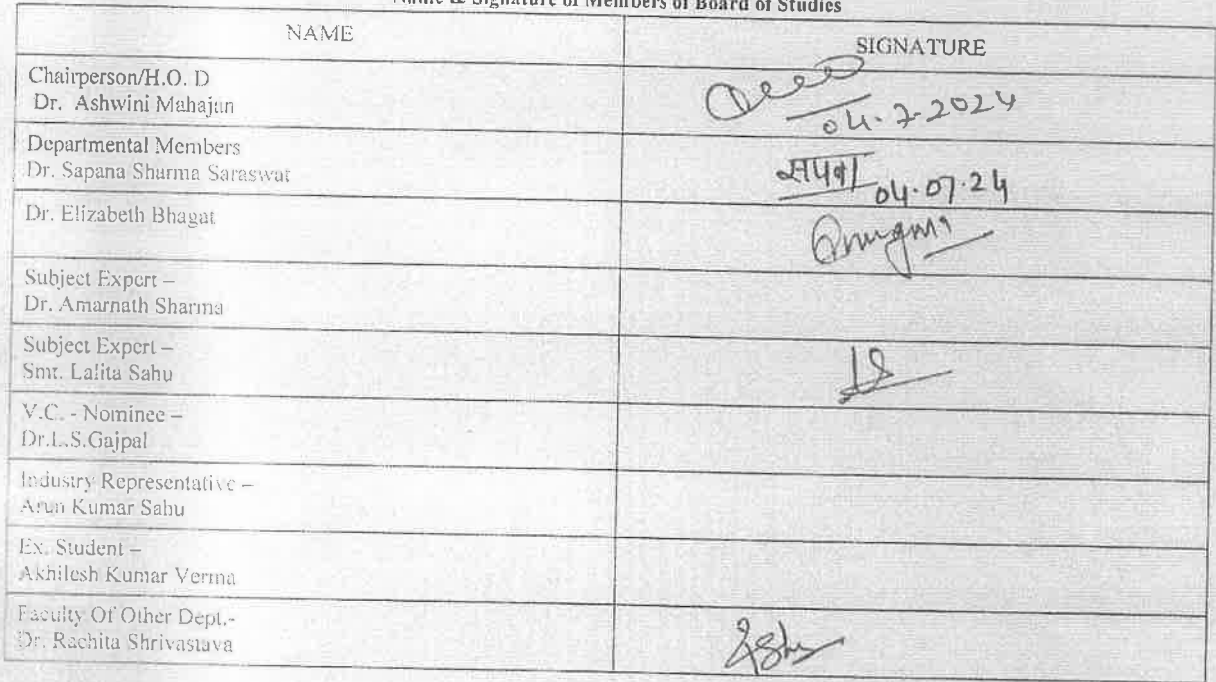 Name & Signature of Members of Board of Studies
NAME
SIGNATURE
Chairperson/H.O. D
Dr. Ashwini Mahajan
04.7.2024
Departmental Members
Dr. Sapana Sharma Saraswat
सपना
04.07.24
Dr. Elizabeth Bhagat
Subject Expert –
Dr. Amarnath Sharma
Subject Expert –
Smt. Lalita Sahu
V.C. - Nominee –
Dr.L.S.Gajpal
Industry Representative –
Arun Kumar Sahu
Ex. Student –
Akhilesh Kumar Verma
Faculty Of Other Dept.-
Dr. Rachita Shrivastava